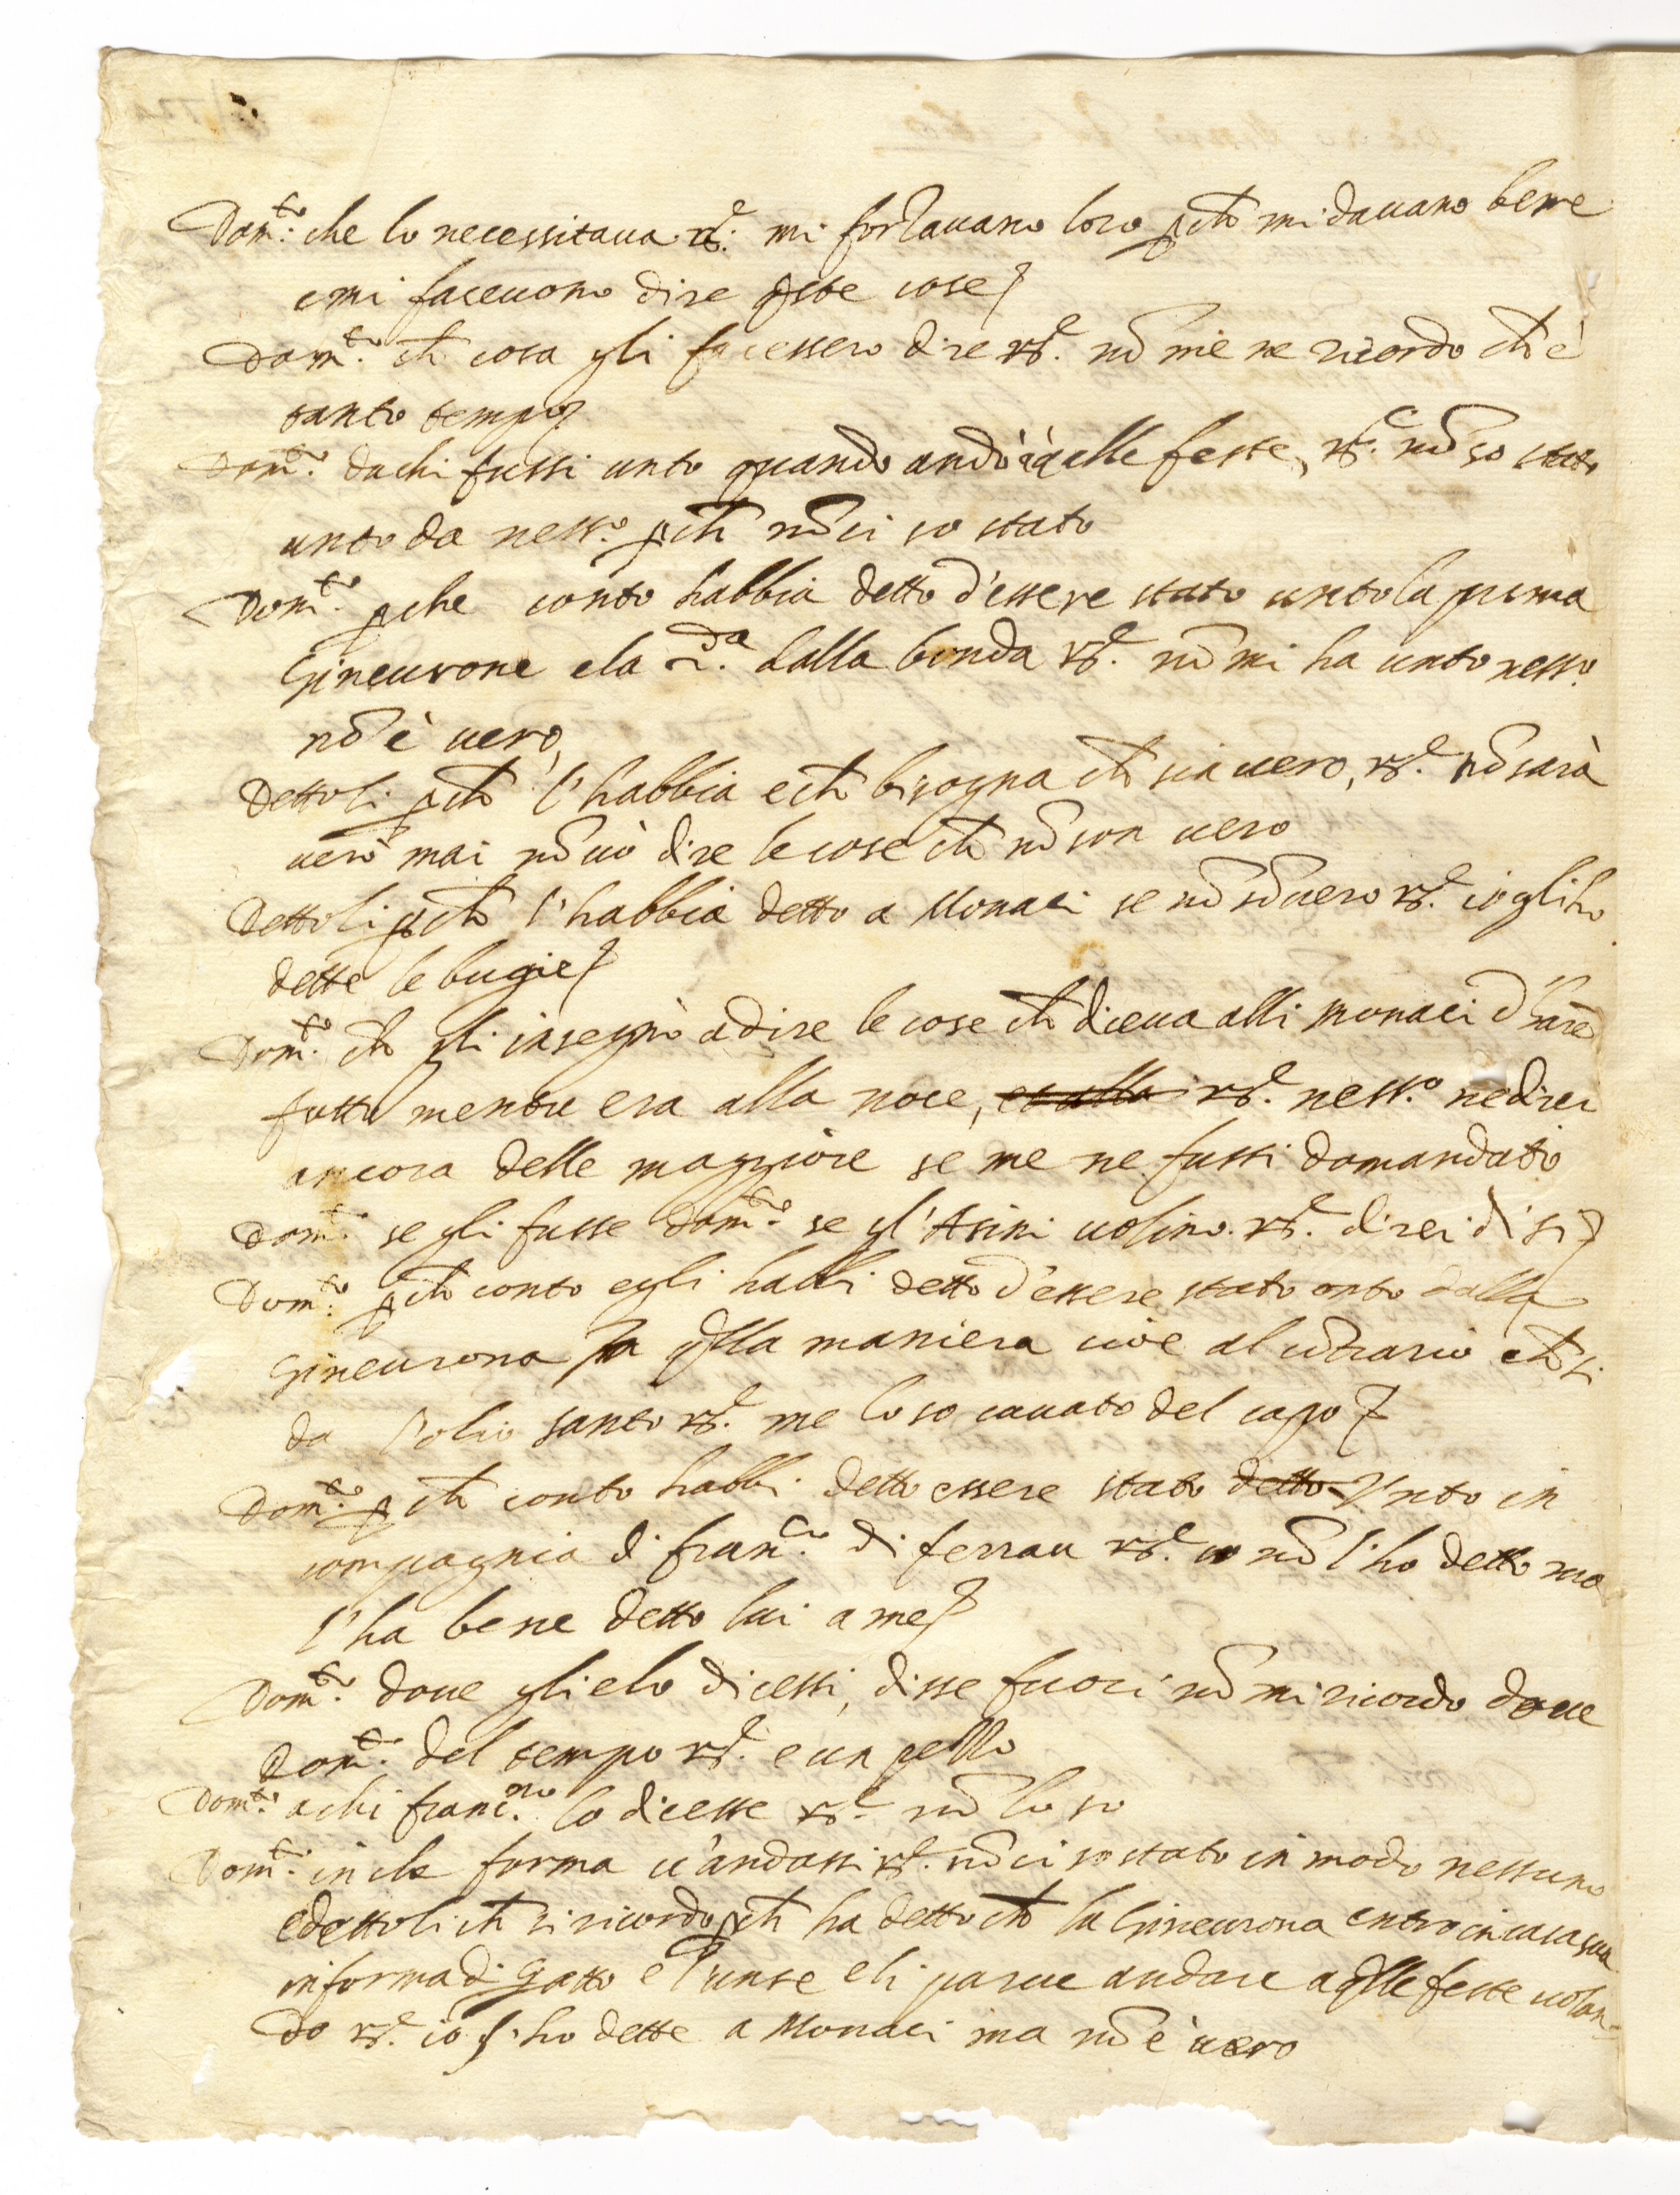 Dom.to che lo necessitaua rs.e mi forzauano loro pch mi dauano bere
e mi faceuono dire qste cose
Dom.to ch cosa gli facessero dire rs.e nō me ne ricordo ch è
tanto tempo
Dom.to da chi fussi unto quando andò à qlle feste, rs.e nō so stato
unto da ness.o pch nō ci so stato
Dom.to p che conto habbia detto d'essere stato unto la prima
Gineurone e la 2.da dalla bionda rs.e nō mi ha unto ness.o
nō è uero
Dettoli pch l'habbia e ch bisogna ch sia uero, rs.e nō sarà
uero mai nō uò dire le cose ch nō son uero
Dettoli pch l'habbia detto a Monaci se nō è uero rs.e io gli ho
dette le bugie
Dom.to ch gli insegnò a dire le cose ch diceua alli Monaci d'hauere
fatte mentre era alla noce, rs.e ness.o ne direi
ancora delle maggiore se me ne fussi domandato
Dom.to se gli fusse dom.to se gl'Asini uolino rs.e direi di si
Dom.to p ch conto egli habbi detto d'essere stato onto dalla
Gineurona p qlla maniera cioe al cōtrario ch si
da l'olio santo rs.e me lo so cauato del capo
Dom.to p ch conto habbi detto essere stato detto Vnto in
compagnia di fran.co di ferrau rs.e io nō l'ho detto ma
l'ha bene detto lui a me
Dom.to doue glielo dicessi, disse fuori nō mi ricordo doue
Dom.to del tempo rs.e e un pezzo
Dom.to a chi franc.no lo dicesse rs.e nō lo so
Dom.to in che forma u'andassi rs.e nō ci so stato in modo nessuno
e dettoli ch si ricordo pch ha detto ch la Gineurona entro in casa sua
in forma di Gatto e l'unse e li parue andare a qlle feste uolan-
do rs.e io l'ho dette a Monaci ma nō è uero